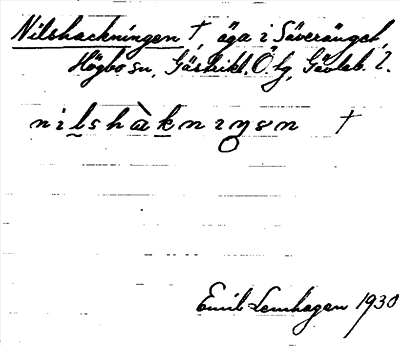 Nilshackningen †, äga i Säveränget,
Högbo sn, Gästrikl. Ö. tg, Gävleb. l.
nilshàkniŋən †
Emil Lemhagen 1930